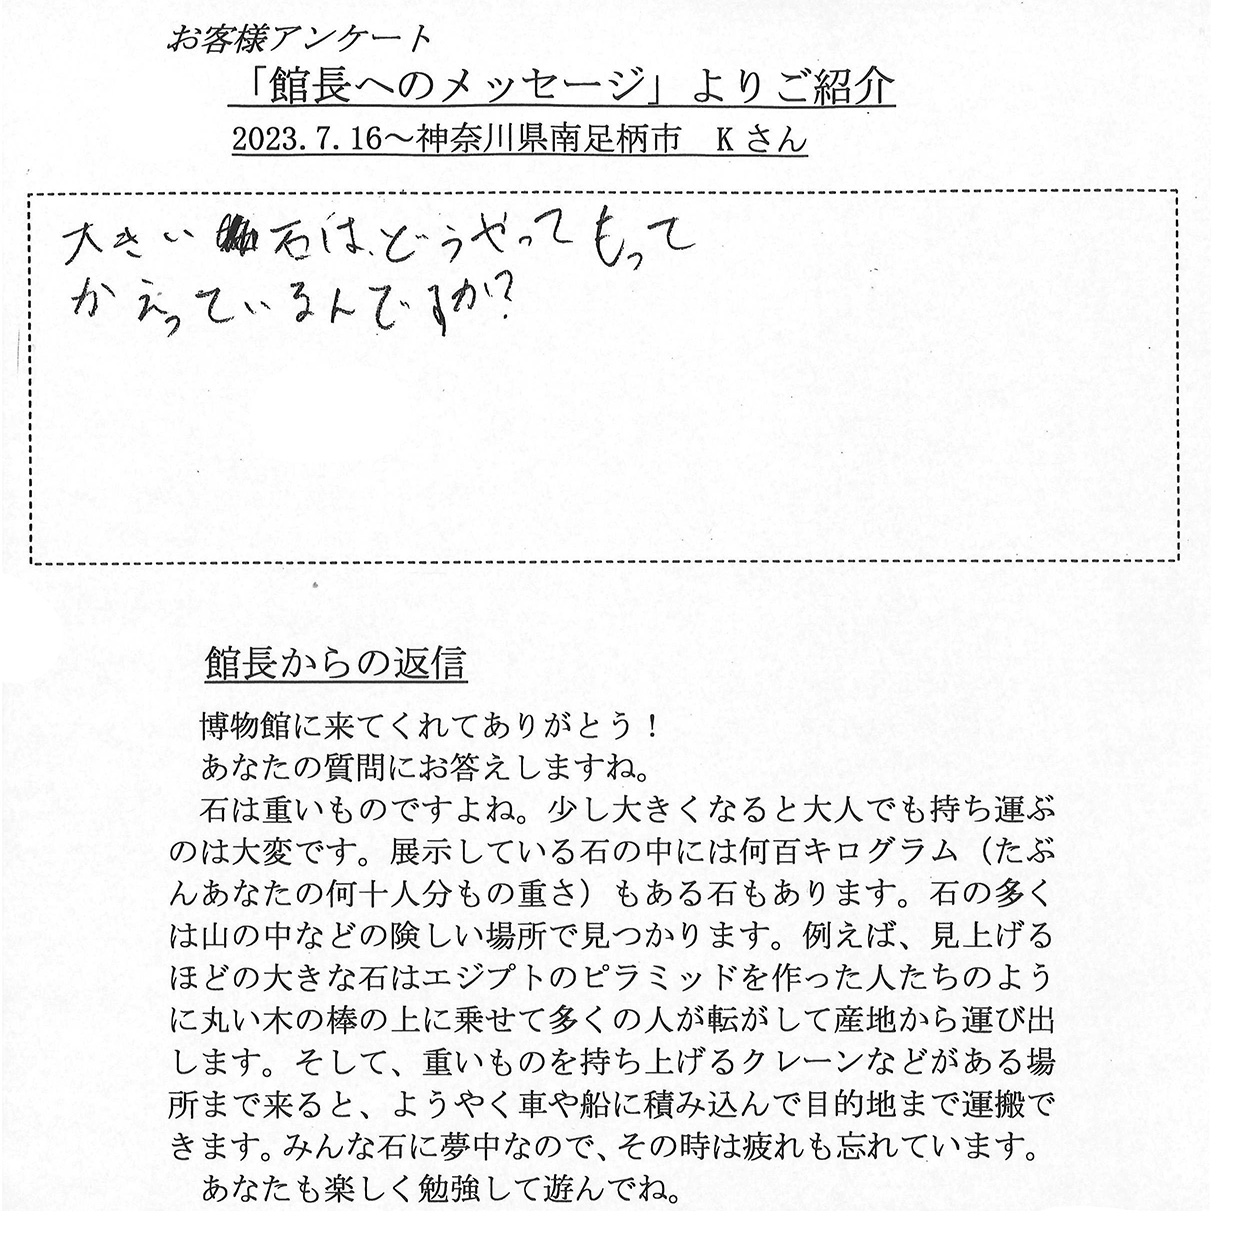 お客様アンケート
「館長へのメッセージ」よりご紹介
2023.7.16～神奈川県南足柄市　Kさん
大きい石は、どうやってもって
かえっているんですか?
館長からの返信
博物館に来てくれてありがとう！
あなたの質問にお答えしますね。
石は重いものですよね。少し大きくなると大人でも持ち運ぶ
のは大変です。展示している石の中には何百キログラム（たぶ
んあなたの何十人分もの重さ）もある石もあります。石の多く
は山の中などの険しい場所で見つかります。例えば、見上げる
ほどの大きな石はエジプトのピラミッドを作った人たちのよう
に丸い木の棒の上に乗せて多くの人が転がして産地から運び出
します。そして、重いものを持ち上げるクレーンなどがある場
所まで来ると、ようやく車や船に積み込んで目的地まで運搬で
きます。みんな石に夢中なので、その時は疲れも忘れています。
あなたも楽しく勉強して遊んでね。